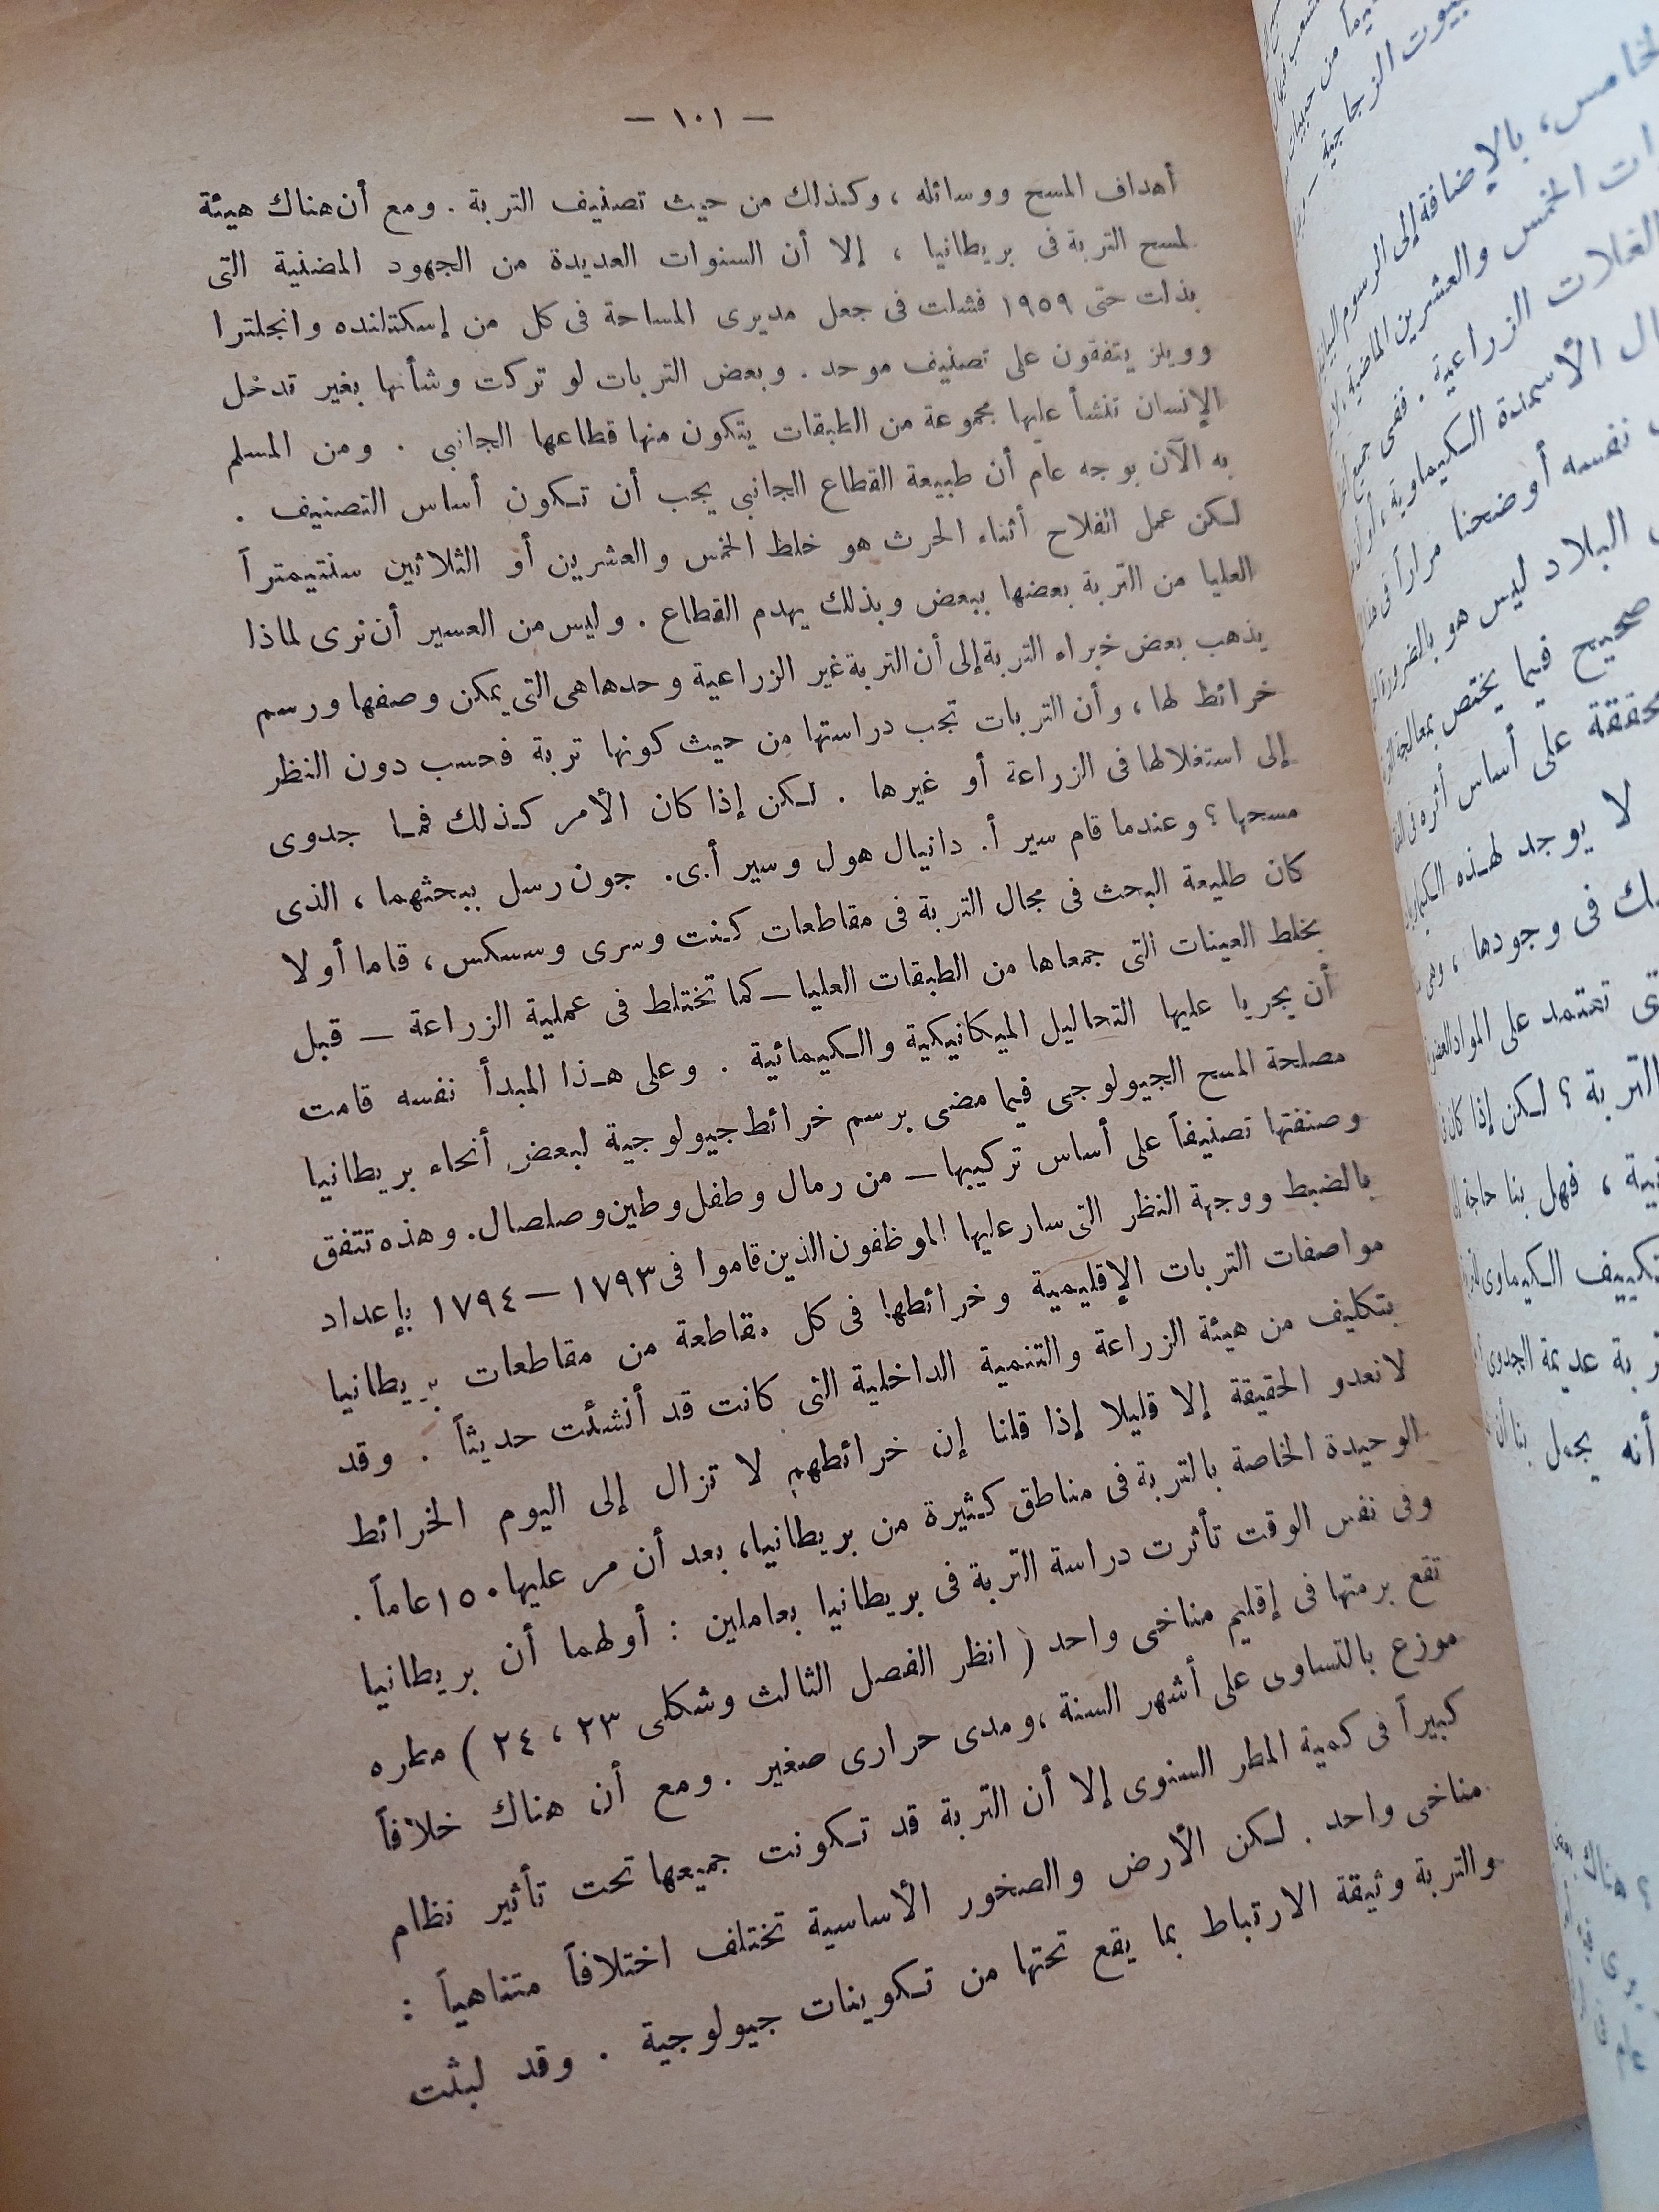 — ١٠١ —
أهداف المسح ووسائله ، وكذلك من حيث تصنيف التربة . ومع أن هناك هيئة
لمسح التربة فى بريطانيا ، إلا أن السنوات العديدة من الجهود المضنية التى
بذلت حتى ١٩٥٩ فشلت فى جعل مديرى المساحة فى كل من إسكتلنده وانجلترا
وويلز يتفقون على تصنيف موحد . وبعض التربات لو تركت وشأنها بغير تدخل
الإنسان تنشأ عليها مجموعة من الطبقات يتكون منها قطاعها الجانبى . ومن المسلم
به الآن بوجه عام أن طبيعة القطاع الجانبى يجب أن تكون أساس التصنيف .
لكن عمل الفلاح أثناء الحرث هو خلط الخمس والعشرين أو الثلاثين سنتيمتراً
العليا من التربة بعضها ببعض وبذلك يهدم القطاع . وليس من العسير أن نرى لماذا
يذهب بعض خبراء التربة إلى أن التربة غير الزراعية وحدها هى التى يمكن وصفها ورسم
خرائط لها ، وأن التربات تجب دراستها من حيث كونها تربة فحسب دون النظر
إلى استغلالها فى الزراعة أو غيرها . لكن إذا كان الأمر كذلك فما جدوى
مسحها ؟ وعندما قام سير أ. دانيال هول وسير أ.ى. جون رسل ببحثهما ، الذى
كان طليعة البحث فى مجال التربة فى مقاطعات كنت وسرى وسسكس ، قاما أولا
بخلط العينات التى جمعاها من الطبقات العليا — كما تختلط فى عملية الزراعة — قبل
أن يجريا عليها التحاليل الميكانيكية والكيمائية . وعلى هذا المبدأ نفسه قامت
مصلحة المسح الجيولوجى فيما مضى برسم خرائط جيولوجية لبعض أنحاء بريطانيا
وصنفتها تصنيفاً على أساس تركيبها — من رمال وطفل وطين وصلصال. وهذه تتفق
بالضبط ووجهة النظر التى سار عليها الموظفون الذين قاموا فى ١٧٩٣ — ١٧٩٤ بإعداد
مواصفات التربات الإقليمية وخرائطها فى كل مقاطعة من مقاطعات بريطانيا
بتكليف من هيئة الزراعة والتنمية الداخلية التى كانت قد أنشئت حديثاً . وقد
لا نعدو الحقيقة إلا قليلا إذا قلنا إن خرائطهم لا تزال إلى اليوم الخرائط
الوحيدة الخاصة بالتربة فى مناطق كثيرة من بريطانيا، بعد أن مر عليها ١٥٠ عاماً .
وفى نفس الوقت تأثرت دراسة التربة فى بريطانيا بعاملين : أولهما أن بريطانيا
تقع برمتها فى إقليم مناخى واحد ( انظر الفصل الثالث وشكلى ٢٣ ، ٢٤ ) مطره
موزع بالتساوى على أشهر السنة ، ومدى حرارى صغير . ومع أن هناك خلافاً
كبيراً فى كمية المطر السنوى إلا أن التربة قد تكونت جميعها تحت تأثير نظام
مناخى واحد . لكن الأرض والصخور الأساسية تختلف اختلافاً متناهياً :
والتربة وثيقة الارتباط بما يقع تحتها من تكوينات جيولوجية . وقد لبثت
بيوت الزجاجية
بالإضافة إلى الرسوم
الخمس والعشرين الماضية
الغلات الزراعية . ففى جميع
الأسمدة الكيماوية ،
نفسه أوضحنا مراراً فى
البلاد ليس هو بالضرورة
صحيح فيما يختص بمعالجة
على أساس أثره فى
لا يوجد لهذه
فى وجودها ،
تعتمد على المواد
التربة ؟ لكن إذا كان
، فهل بنا حاجة
الكيماوى
عديمة الجدوى
أنه يجمل بنا أن